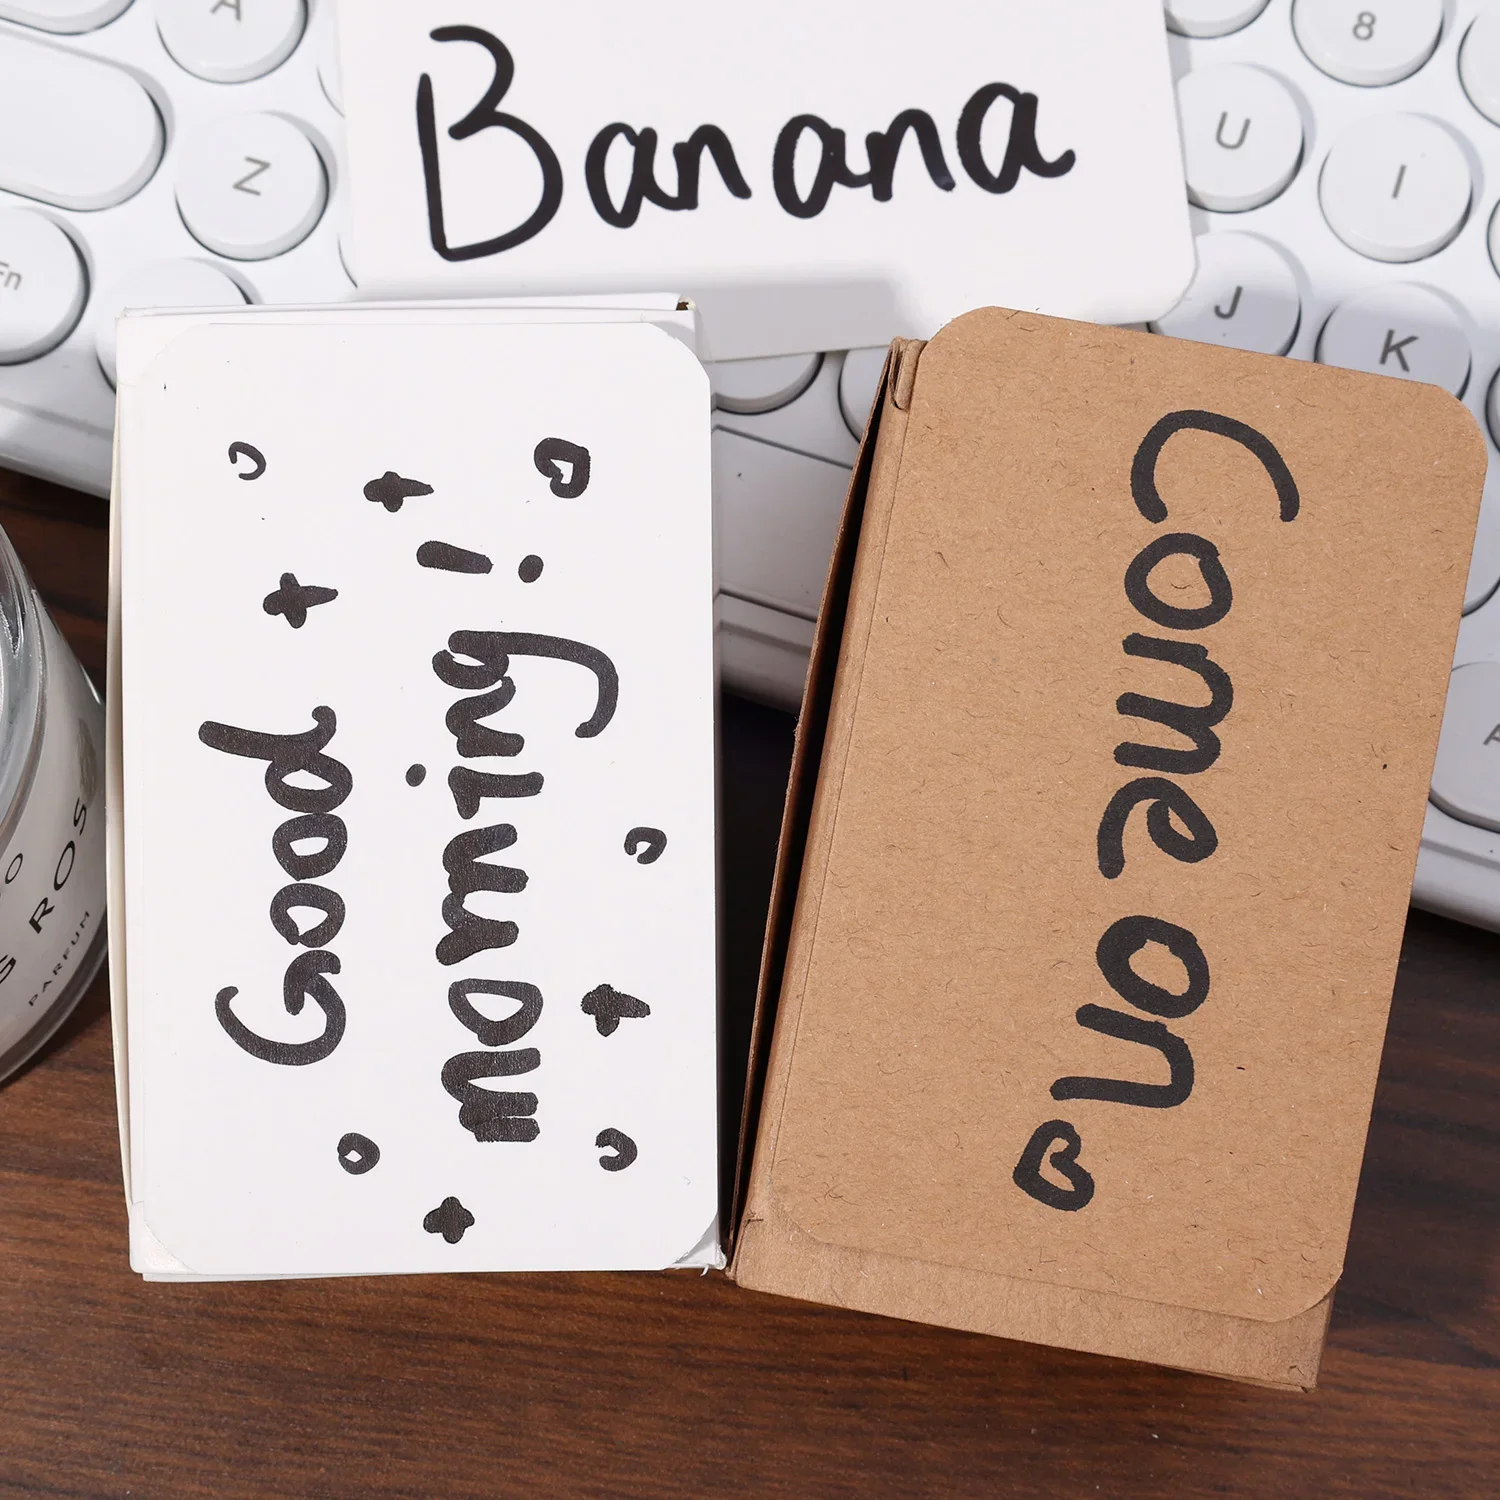 Banana
Good
morning!
Come on
A
Z
Fn
8
U
I
J
K
A
ROS
PARFUM